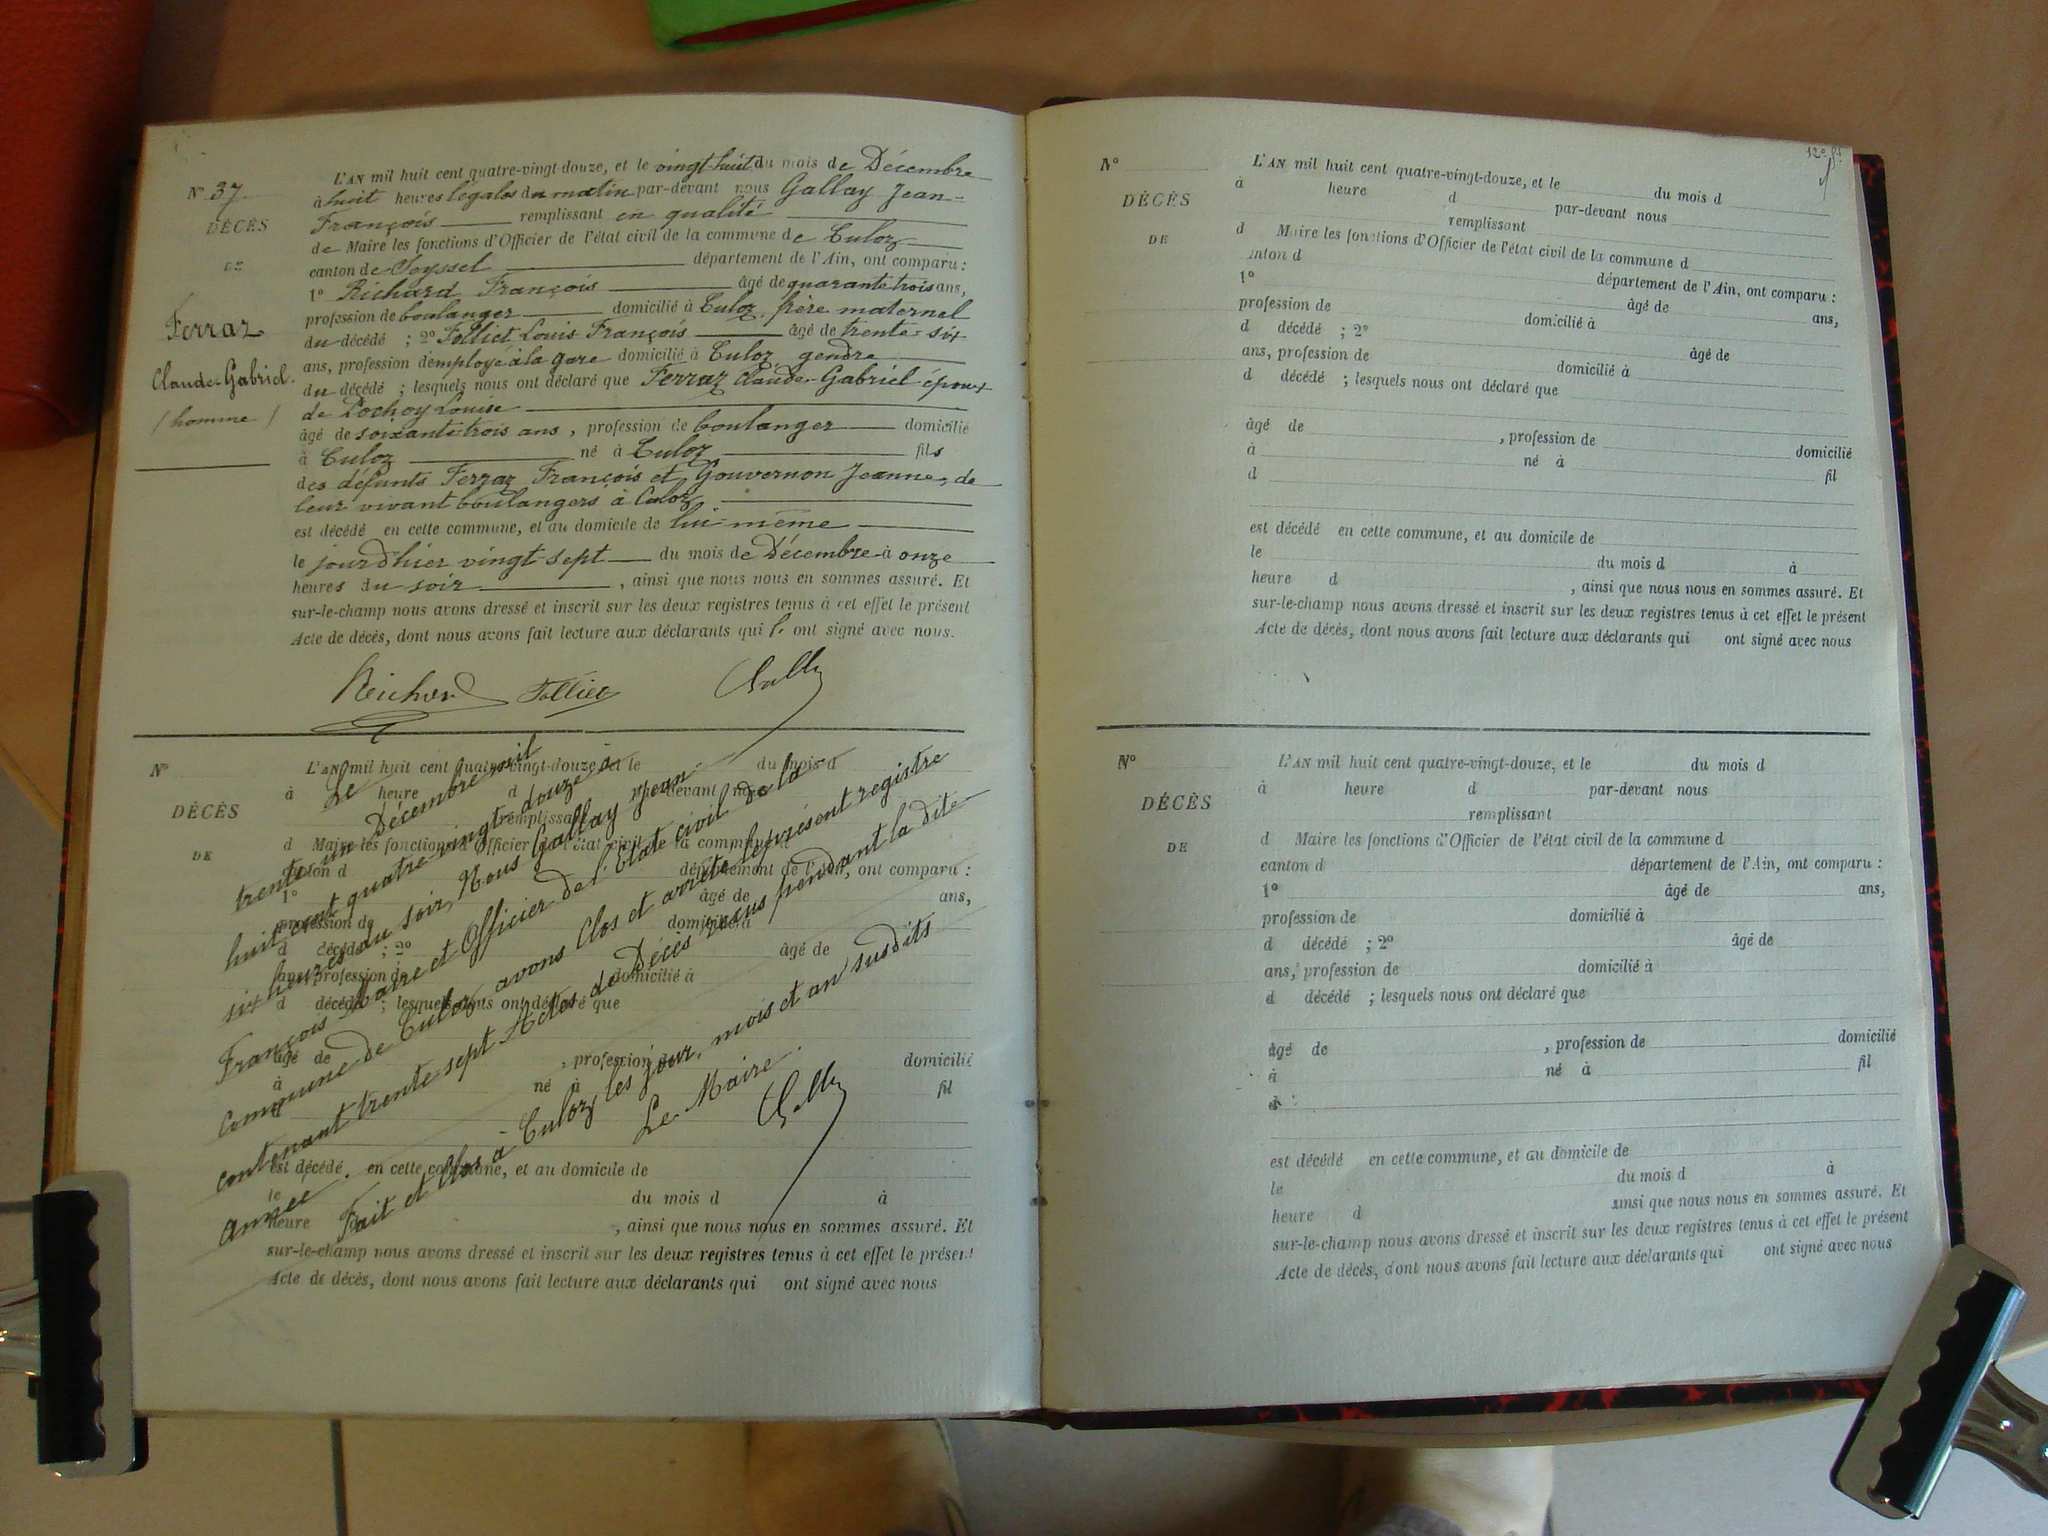 N° 37
DÉCÈS
DE
Ferraz
Claude-Gabriel.
/ homme /
L'AN mil huit cent quatre-vingt-douze, et le vingt-huit du mois de Décembre
à huit heures légales du matin par-devant nous Gallay Jean-
François remplissant en qualité
de Maire les fonctions d'Officier de l'état civil de la commune de Culoz
canton de Seyssel département de l'Ain, ont comparu :
1° Richard François âgé de quarante trois ans,
profession de boulanger domicilié à Culoz, frère maternel
du décédé ; 2° Folliet Louis François âgé de trente-six
ans, profession d'employé à la gare domicilié à Culoz gendre
du décédé ; lesquels nous ont déclaré que Ferraz Claude-Gabriel époux
de Pochoy Louise
âgé de soixante-trois ans, profession de boulanger domicilié
à Culoz né à Culoz fils
des défunts Ferraz François et Gouvernon Jeanne, de
leur vivant boulangers à Culoz
est décédé en cette commune, et au domicile de lui-même
le jourd'hier vingt-sept du mois de Décembre à onze
heures du soir, ainsi que nous nous en sommes assuré. Et
sur-le-champ nous avons dressé et inscrit sur les deux registres tenus à cet effet le présent
Acte de décès, dont nous avons fait lecture aux déclarants qui l' ont signé avec nous.
Richard Folliet Gallay
N°
DÉCÈS
DE
L'AN mil huit cent quatre-vingt-douze, et le du mois d
à heure d par-devant nous
remplissant
d Maire les fonctions d'Officier de l'état civil de la commune d
canton d département de l'Ain, ont comparu :
1° âgé de ans,
profession de domicilié à
d décédé ; 2° âgé de
ans, profession de domicilié à
d décédé ; lesquels nous ont déclaré que
âgé de , profession de domicilié
à né à fil
d
est décédé en cette commune, et au domicile de
le du mois d à
heure d , ainsi que nous nous en sommes assuré. Et
sur-le-champ nous avons dressé et inscrit sur les deux registres tenus à cet effet le présent
Acte de décès, dont nous avons fait lecture aux déclarants qui ont signé avec nous
Le
trente-un Décembre mil
huit cent quatre-vingt-douze à
six heures du soir, Nous Gallay Jean-
François Maire et Officier de l'Etat civil de la
Commune de Culoz, avons Clos et arrêté le présent registre
contenant trente sept Actes de Décès reçus pendant la dite
année.
Fait et Clos à Culoz, les jour, mois et an susdits
Le Maire.
Gallay
12e ft
N°
DÉCÈS
DE
L'AN mil huit cent quatre-vingt-douze, et le du mois d
à heure d par-devant nous
remplissant
d Maire les fonctions d'Officier de l'état civil de la commune d
canton d
département de l'Ain, ont comparu :
1° âgé de ans,
profession de domicilié à
d décédé ; 2° âgé de
ans, profession de domicilié à
d décédé ; lesquels nous ont déclaré que
âgé de , profession de domicilié
à né à
d fil
est décédé en cette commune, et au domicile de
le du mois d à
heure d , ainsi que nous nous en sommes assuré. Et
sur-le-champ nous avons dressé et inscrit sur les deux registres tenus à cet effet le présent
Acte de décès, dont nous avons fait lecture aux déclarants qui ont signé avec nous
N°
DÉCÈS
DE
L'AN mil huit cent quatre-vingt-douze, et le du mois d
à heure d par-devant nous
remplissant
d Maire les fonctions d'Officier de l'état civil de la commune d
canton d département de l'Ain, ont comparu :
1° âgé de ans,
profession de domicilié à
d décédé ; 2° âgé de
ans, profession de domicilié à
d décédé ; lesquels nous ont déclaré que
âgé de , profession de domicilié
à né à fil
d
est décédé en cette commune, et au domicile de
le du mois d à
heure d ainsi que nous nous en sommes assuré. Et
sur-le-champ nous avons dressé et inscrit sur les deux registres tenus à cet effet le présent
Acte de décès, dont nous avons fait lecture aux déclarants qui ont signé avec nous